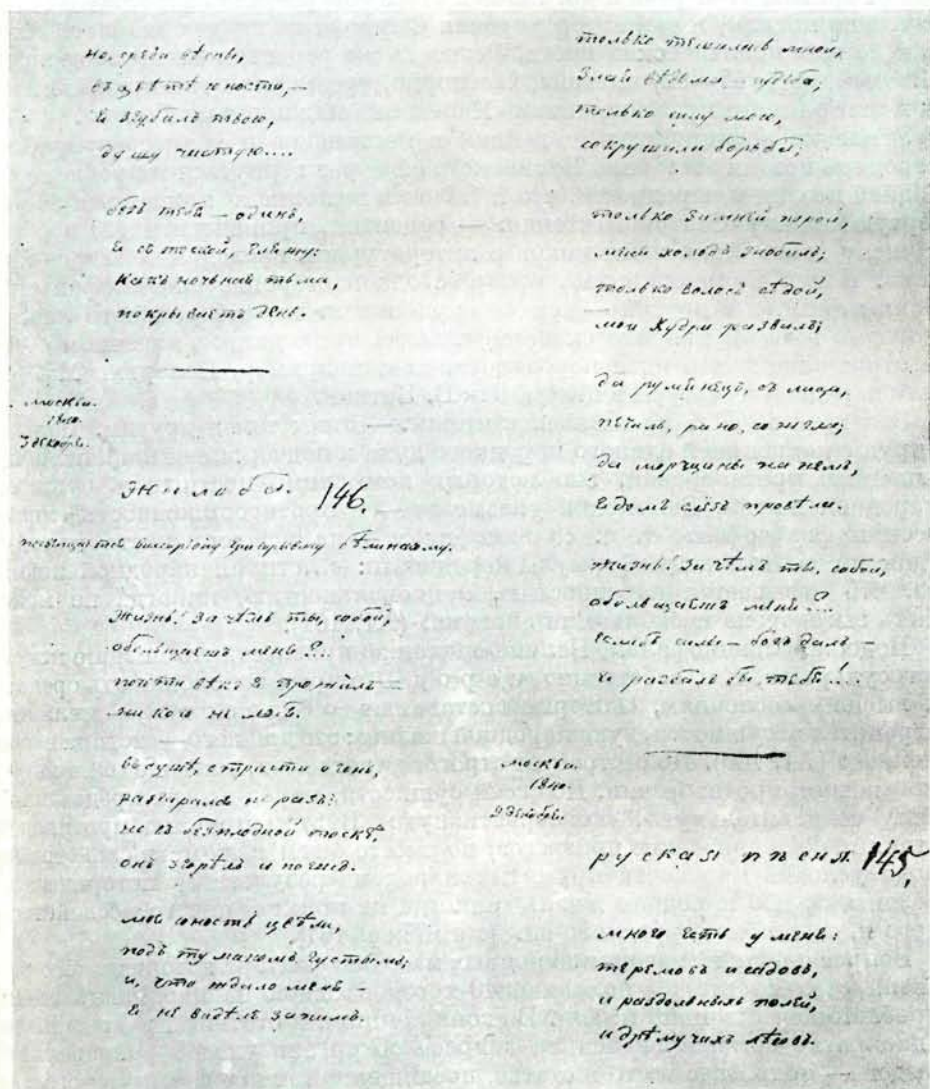 но, среди весны,
въ цвѣтѣ юности,—
Я згубилъ твою,
душу чистую....
безъ тебя — одинъ,
Я съ тоской, гляжу:
Какъ ночьная тьма,
покрываетъ день.
москва.
1840.
3 декабря.
Жалоба. 146.
посвящается Висарiону Григорьевичу Бѣлинскому.
Жизнь! за чѣмъ ты, собой,
обольщаешь меня?..
почти вѣкъ я прожилъ
ни кого не любя.
въ душѣ, страсти огонь,
разгарался не разъ:
но въ безплодной тоскѣ,
онъ згорѣлъ и погасъ.
моя юность цвѣла,
подъ туманомъ густымъ;
и, что ждало меня —
Я не видѣлъ за нимъ.
только тешилась мной,
Злая вѣдьма — судьба;
только силу мою,
сокрушила борьба;
только зимней порой,
меня холодъ знобилъ;
только волосъ сѣдой,
мои Кудри развилъ;
да румянецъ, съ лица,
печаль, рано, сожгла;
да морщины на нёмъ,
Ядомъ слёзъ провела.
жизнь! за чѣмъ ты, собой,
обольщаешь меня?..
еслибъ силы — богъ далъ —
Я разбилъ бы тебя!...
москва.
1840
9 декабря.
руская пѣсня. 145,
много есть у меня:
теремовъ и садовъ,
и раздольныхъ полей,
и дрѣмучихъ лѣсовъ.